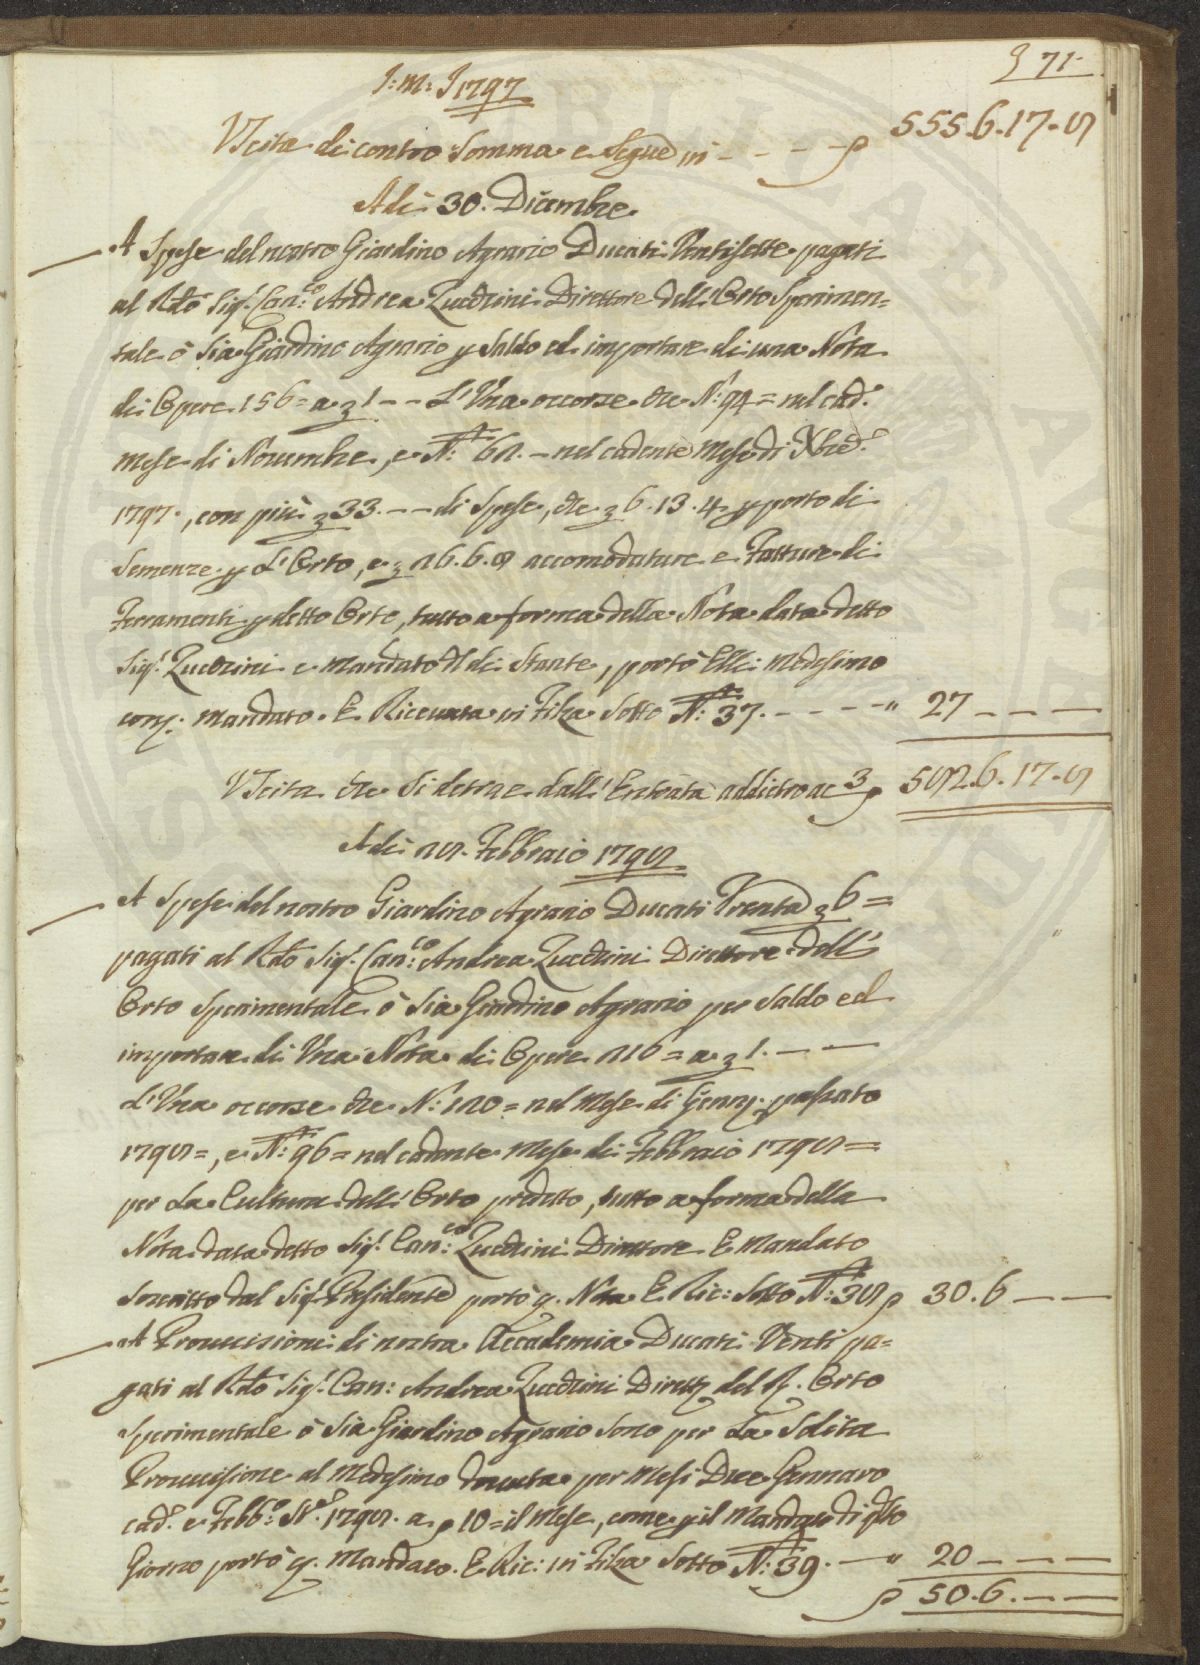 71
J: M: J 1797
Vscita di contro Somma e Segue in - - - - 555.6.17.8
Adi 30. Dicembre.
A Spese del nostro Giardino Agrario Ducati Ventisette pagati
al Rdo Sigr. Canco. Andrea Zucchini Direttore dell' Orto Sperimen=
tale ò sia Giardino Agrario p Saldo ed importare di una Nota
di Opere 156 = a 1 - - L'Vna occorse che N: 94 = nel cad.e
Mese di Novembre, e N: 62. - nel cadente Mese di Xbre
1797., con più 33. - - di Spese, che 6.13.4 p porto di
Semenze p L'Orto, e 26.6.8 accomodature e Fatture di
Ferramenti p detto Orto, tutto a forma della Nota data detto
Sigr. Zucchini e Mandato di Stante, portò Elli Medesimo
Mandato. E Ricevuta in Filza Sotto N: 37. - - - - " 27 - - -
Vscita che Si detrae dall' Entrata addietro ac 3 582.6.17.8
Adi 28. Febbraio 1798
A Spese del nostro Giardino Agrario Ducati Trenta 6 =
pagati al Rdo Sigr. Canco: Andrea Zucchini Direttore dell'
Orto Sperimentale ò sia Giardino Agrario per Saldo ed
importare di Vna Nota di Opere 216 = a 1. - -
L'Vna occorse che N: 120 = nel Mese di Genno. passato
1798 =, e N: 96 = nel cadente Mese di Febbraio 1798 =
per La Cultura dell' Orto predetto, tutto a forma della
Nota data detto Sigr. Canco: Zucchini Direttore E Mandato
Soscritto dal Sigr. Presidente portò Nota E Ric: Sotto N: 38 30.6 - -
A Provvisioni di nostra Accademia Ducati Venti pa=
gati al Rdo Sigr. Can: Andrea Zucchini Dirett. del R. Orto
Sperimentale ò sia Giardino Agrario Sono per La Solita
Provvisione al Medesimo dovuta per Mesi Due Gennaro
cad. e Febbo. 1798. a 10 = il Mese, come p il Mandato di qsto
Giorno portò Mandato. E Ric: in Filza Sotto N: 39. - " 20 - - -
50.6. - -